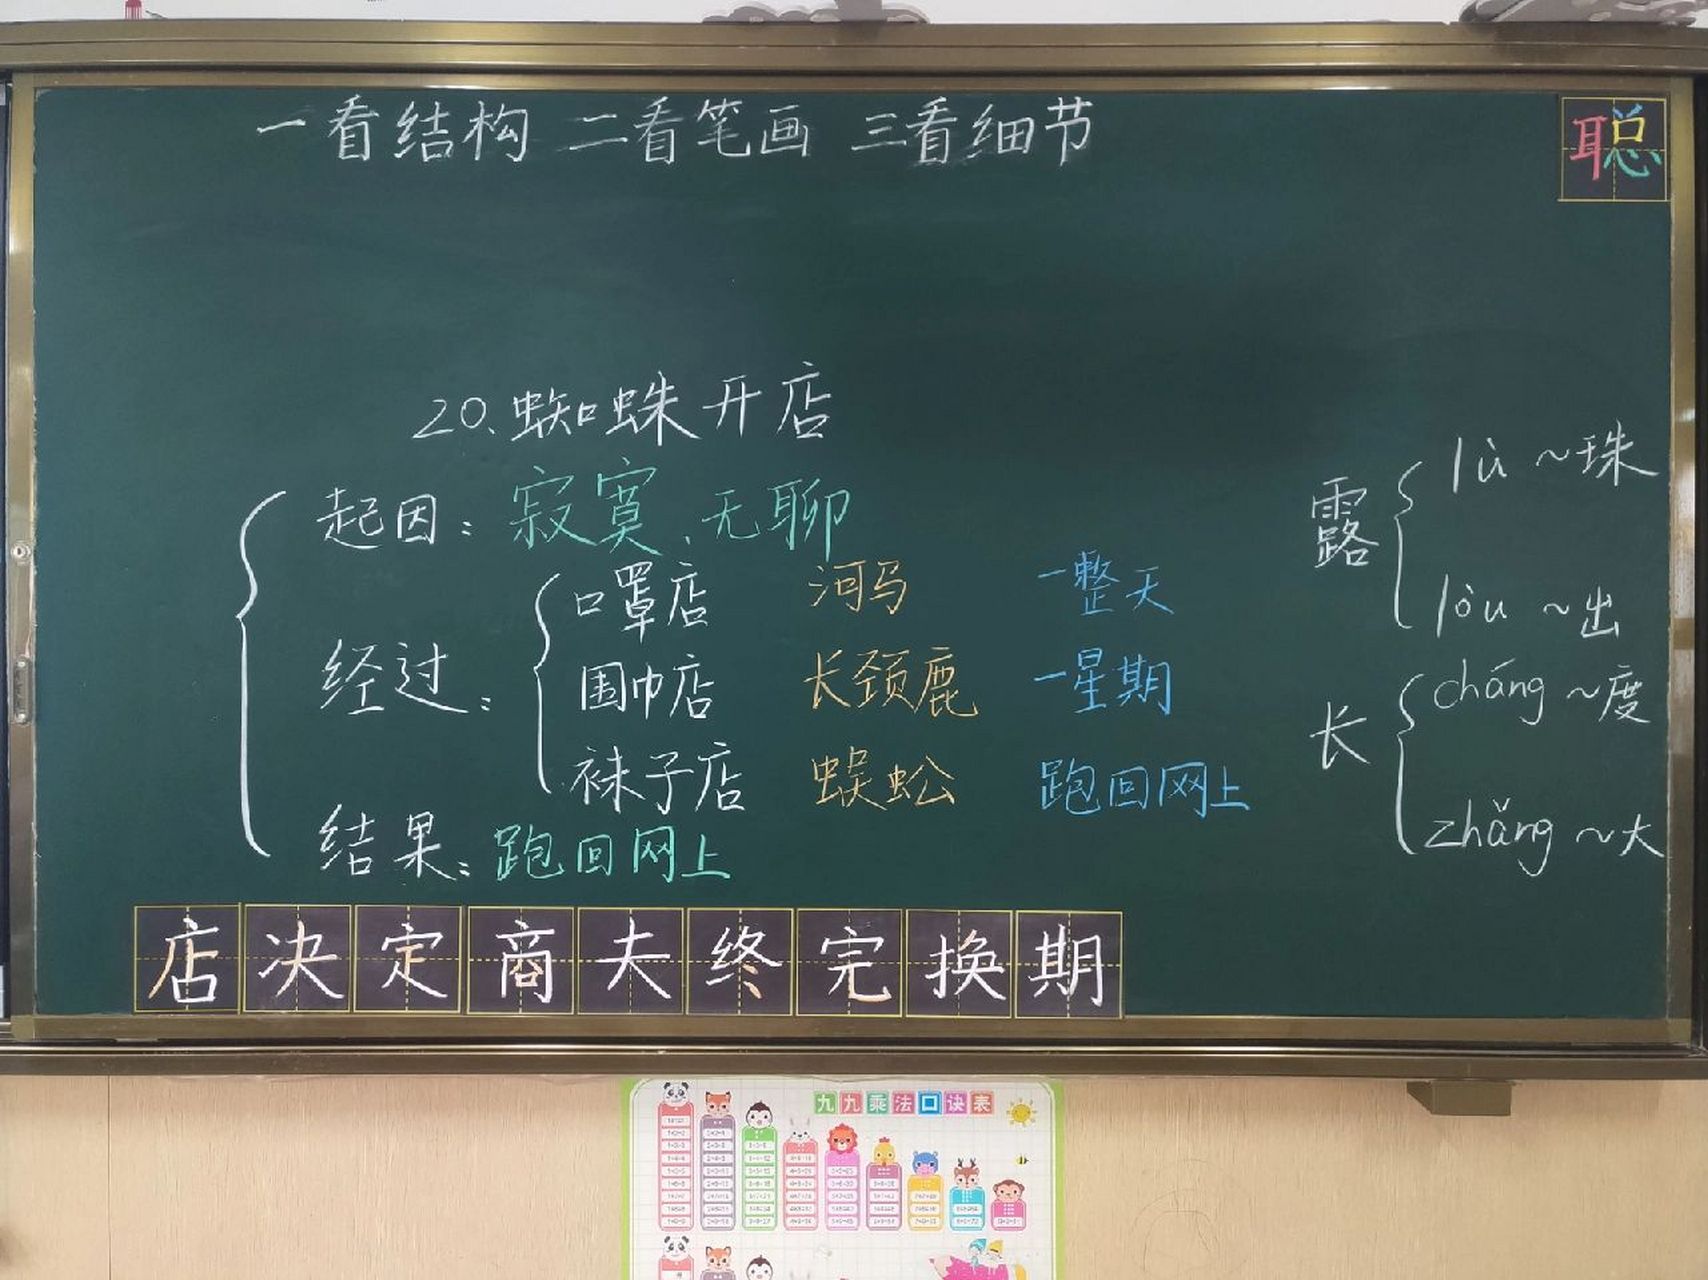 一看结构 二看笔画 三看细节
聪
20.蜘蛛开店
起因：寂寞、无聊
经过：
口罩店 河马 一整天
围巾店 长颈鹿 一星期
袜子店 蜈蚣 跑回网上
结果：跑回网上
露
lù ~珠
lòu ~出
长
cháng ~度
zhǎng ~大
店决定商夫终完换期
九九乘法口诀表